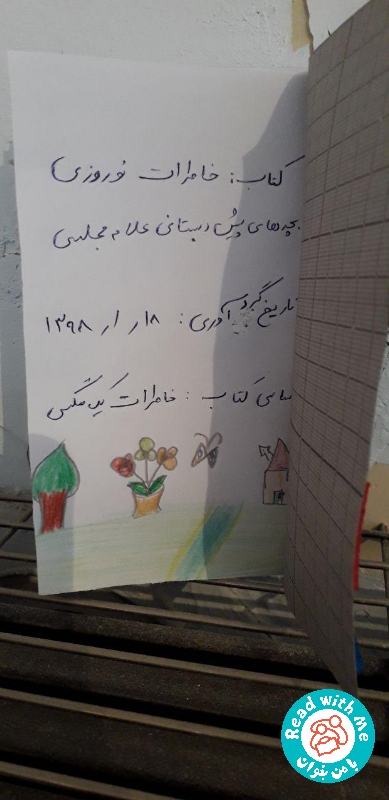 کتاب: خاطرات نوروزی
بچه های پیش دبستانی علامه مجلسی
تاریخ گردآوری: ۱۸ ار ۱۳۹۸
کتاب: خاطرات
Read with Me
با من بخوان